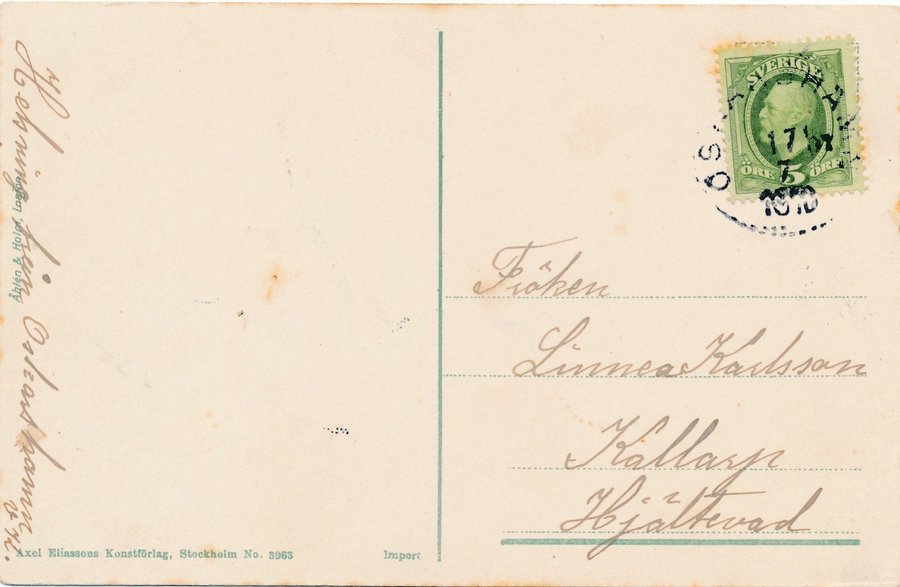 Helsning från Oskarshamn
Åhlén & Holm, Insjön
SVERIGE
ÖRE 5 ÖRE
17
7
1910
Fröken
Linnea Karlsson
Kållarp
Hjältevad
Axel Eliassons Konstförlag, Stockholm No. 3963
Import